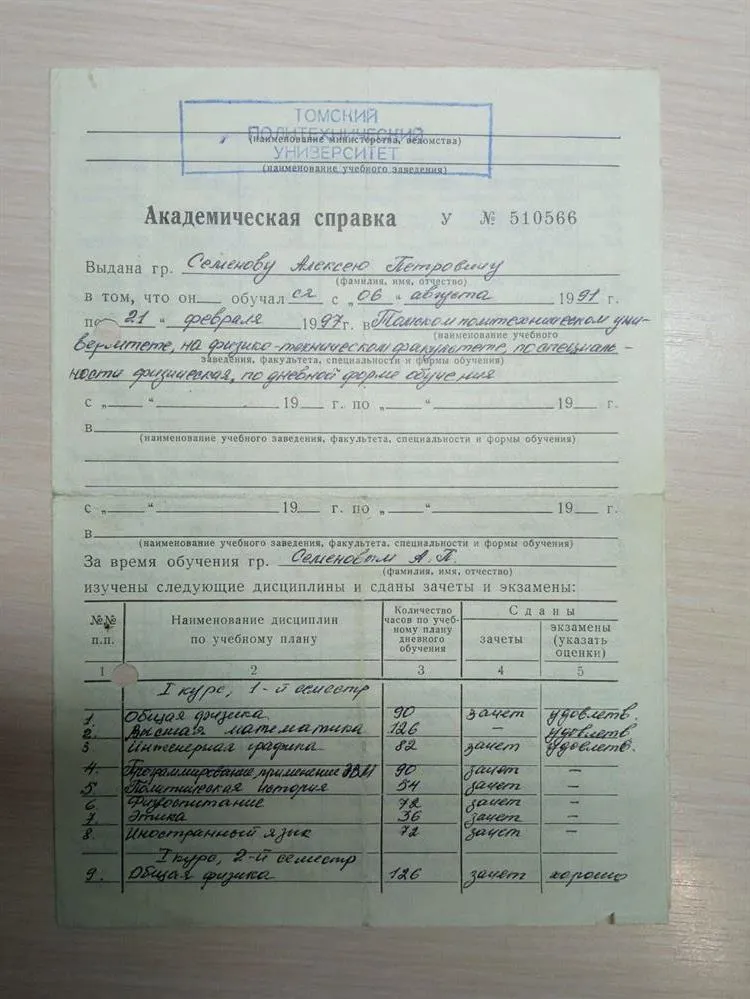 ТОМСКИЙ
ПОЛИТЕХНИЧЕСКИЙ
(наименование министерства, ведомства)
УНИВЕРСИТЕТ
(наименование учебного заведения)
Академическая справка У № 510566
Выдана гр. Семенову Алексею Петровичу
(фамилия, имя, отчество)
в том, что он обучался с „06“ августа 1991 г.
по 21 “ февраля 1997г. в Томском политехническом уни-
(наименование учебного
верситете, на физико-техническом факультете, по специаль-
заведения, факультета, специальности и формы обучения)
ности физическая, по дневной форме обучения
с „ “ 19 г. по „ “ 19 г.
в
(наименование учебного заведения, факультета, специальности и формы обучения)
с „ “ 19 г. по „ “ 19 г.
в
(наименование учебного заведения, факультета, специальности и формы обучения)
За время обучения гр. Семеновым А. П.
(фамилия, имя, отчество)
изучены следующие дисциплины и сданы зачеты и экзамены:
№№ п.п. Наименование дисциплин по учебному плану Количество часов по учеб-ному плану дневного обучения Сданы зачеты экзамены (указать оценки)
1 2 3 4 5
I курс, 1-й семестр
1. Общая физика 90 зачет удовлетв.
2. Высшая математика 126 – удовлетв
3 Инженерная графика 82 зачет удовлетв.
4. Программирование, применение ЭВМ 90 зачет –
5. Политическая история 54 зачет –
6 Физвоспитание 72 зачет –
7. Этика 36 зачет –
8. Иностранный язык 72 зачет –
I курс, 2-й семестр
9. Общая физика 126 зачет хорошо